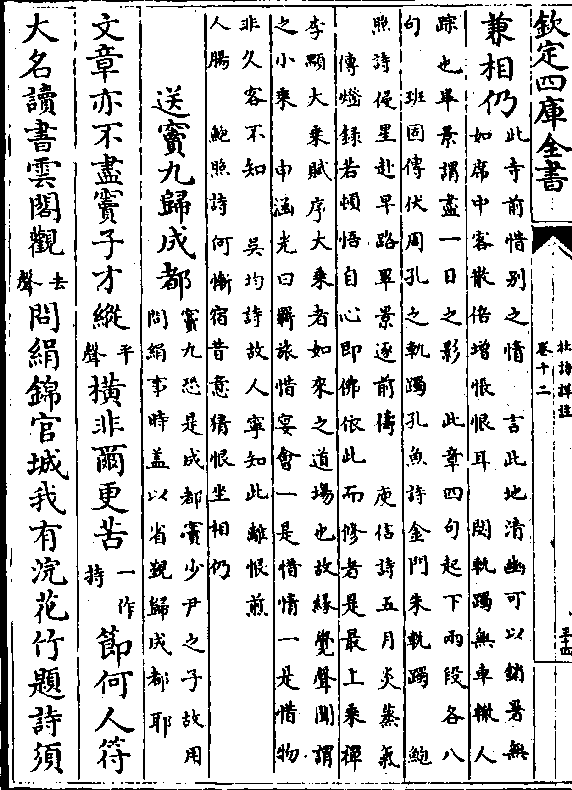 欽定四庫全書
杜詩詳註
卷十二
三十四
兼相仍
此寺前惜别之情 言此地清幽可以銷暑無
如席中客散倍增悵恨耳 閉軌躅無車轍人
踪也畢景謂盡一日之影 此章四句起下兩段各八
句 班固傳伏周孔之軌躅孔魚詩金門朱軌躅 鮑
照詩侵星赴早路畢景逐前儔 庾信詩五月炎蒸氣
傳燈錄若頓悟自心即佛依此而修者是最上乘禪
李顒大乘賦序大乘者如來之道塲也故緣覺聲聞謂
之小乘 申涵光曰羈旅惜宴會一是惜情一是惜物
非久客不知 吳均詩故人寧知此離恨煎
人腸 鮑照詩何慚宿昔意猜恨坐相仍
送竇九歸成都
竇九恐是成都竇少尹之子故用
問絹事時蓋以省覲歸成都耶
文章亦不盡竇子才縱平聲橫非爾更苦一作持節何人符
大名讀書雲閣觀去聲問絹錦官城我有浣花竹題詩須